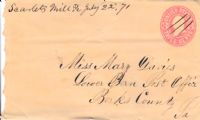 Scarlets Mill Pa July 22, 71
Miss Mary Davis
Lower Bern Post Office
Berks County
Pa